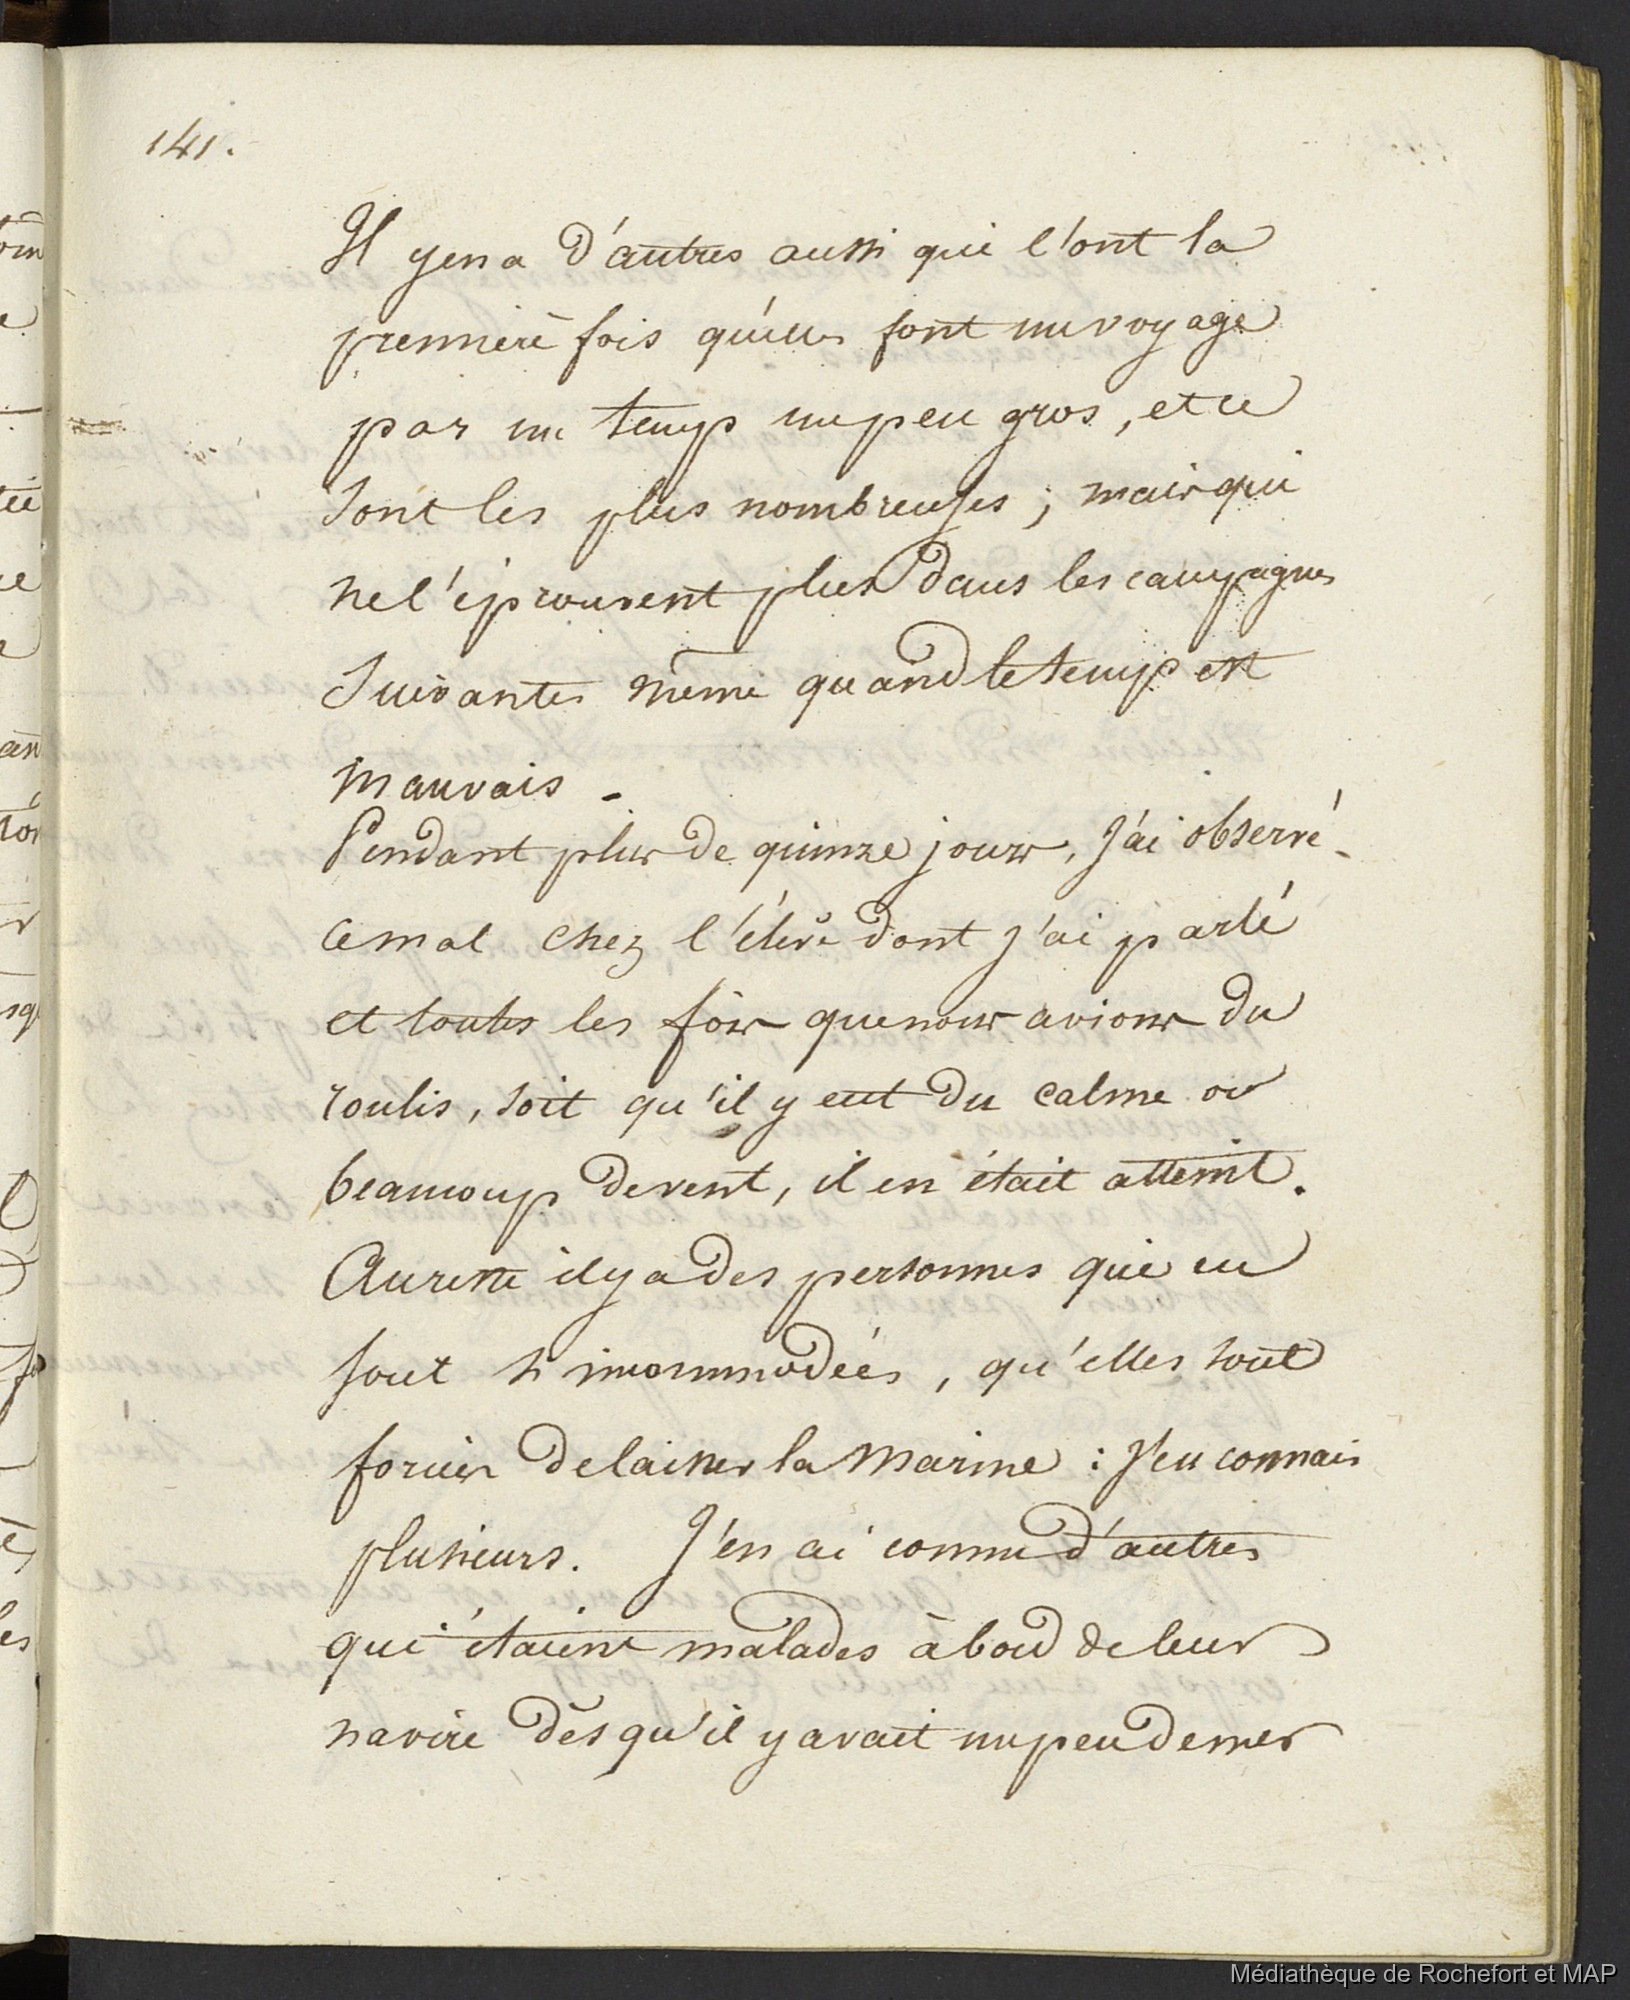 141.
Il y en a d'autres aussi qui l'ont la
première fois qu'elles font un voyage
par un temp un peu gros, et ce
sont les plus nombreuses ; mais qui
ne l'éprouvent plus dans les campagnes
suivantes même quand le temp est
mauvais -
Pendant plus de quinze jours, j'ai observé
ce mal chez l'élève dont j'ai parlé
et toutes les fois que nous avions du
roulis, soit qu'il y eut du calme ou
beaucoup de vent, il en était atteint.
Au reste il y a des personnes qui en
sont si incommodées, qu'elles sont
forcées de laisser la marine : J'en connais
plusieurs. J'en ai connu d'autres
qui étaient malades à bord de leur
navire dès qu'il y avait un peu de mer
Médiathèque de Rochefort et MAP